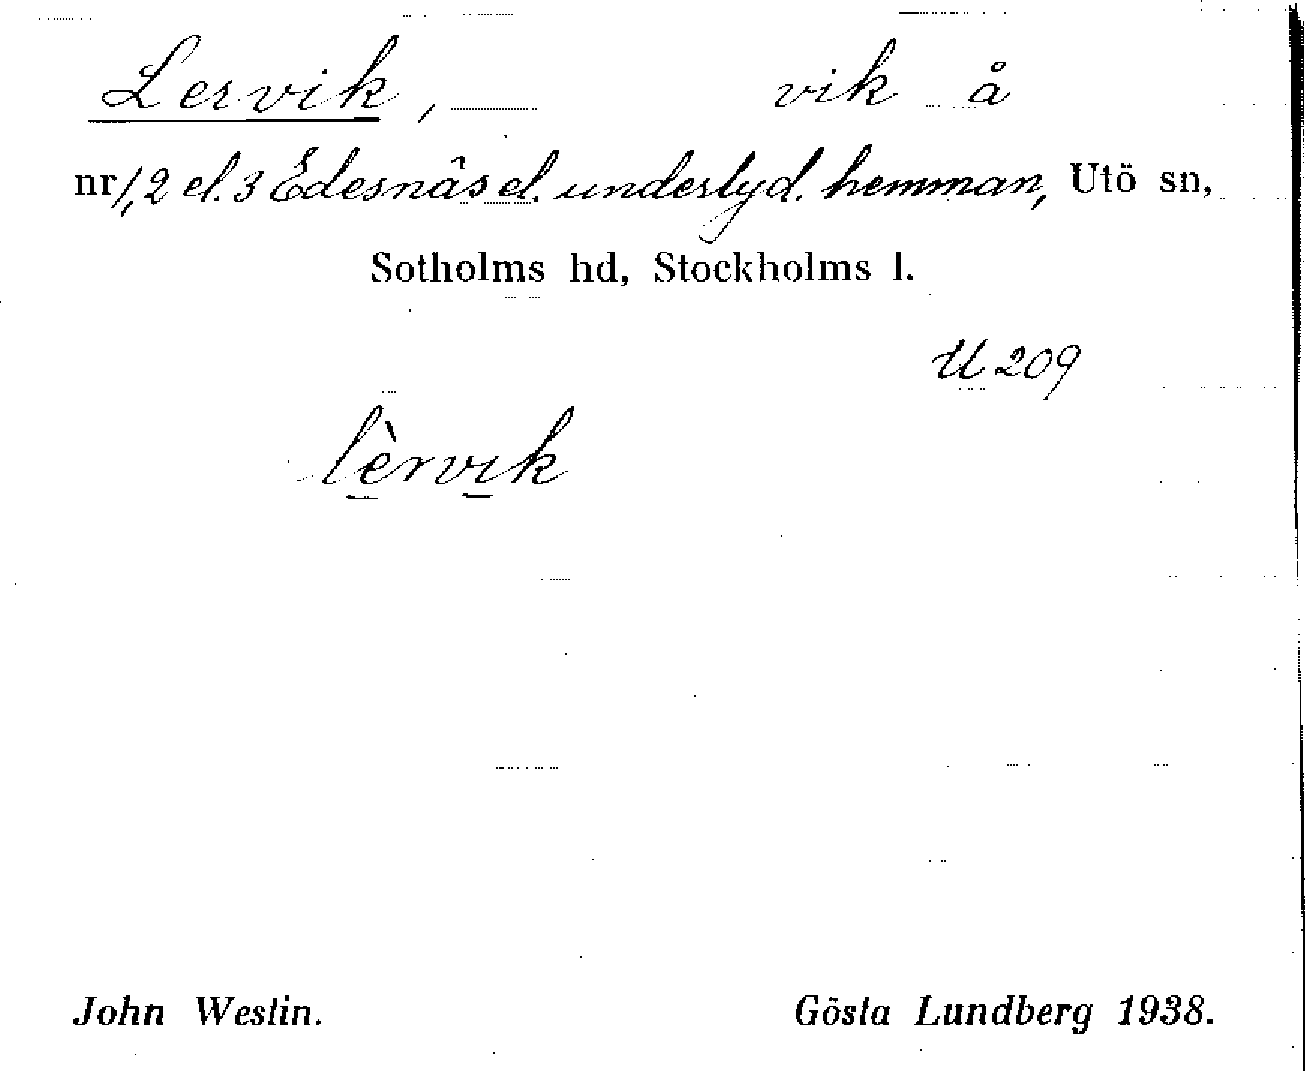 Lervik, vik å
nr 1, 2 el. 3 Edesnäs el. underlyd. hemman, Utö sn,
Sotholms hd, Stockholms l.
U 209
lèrvik
John Westin. Gösta Lundberg 1938.